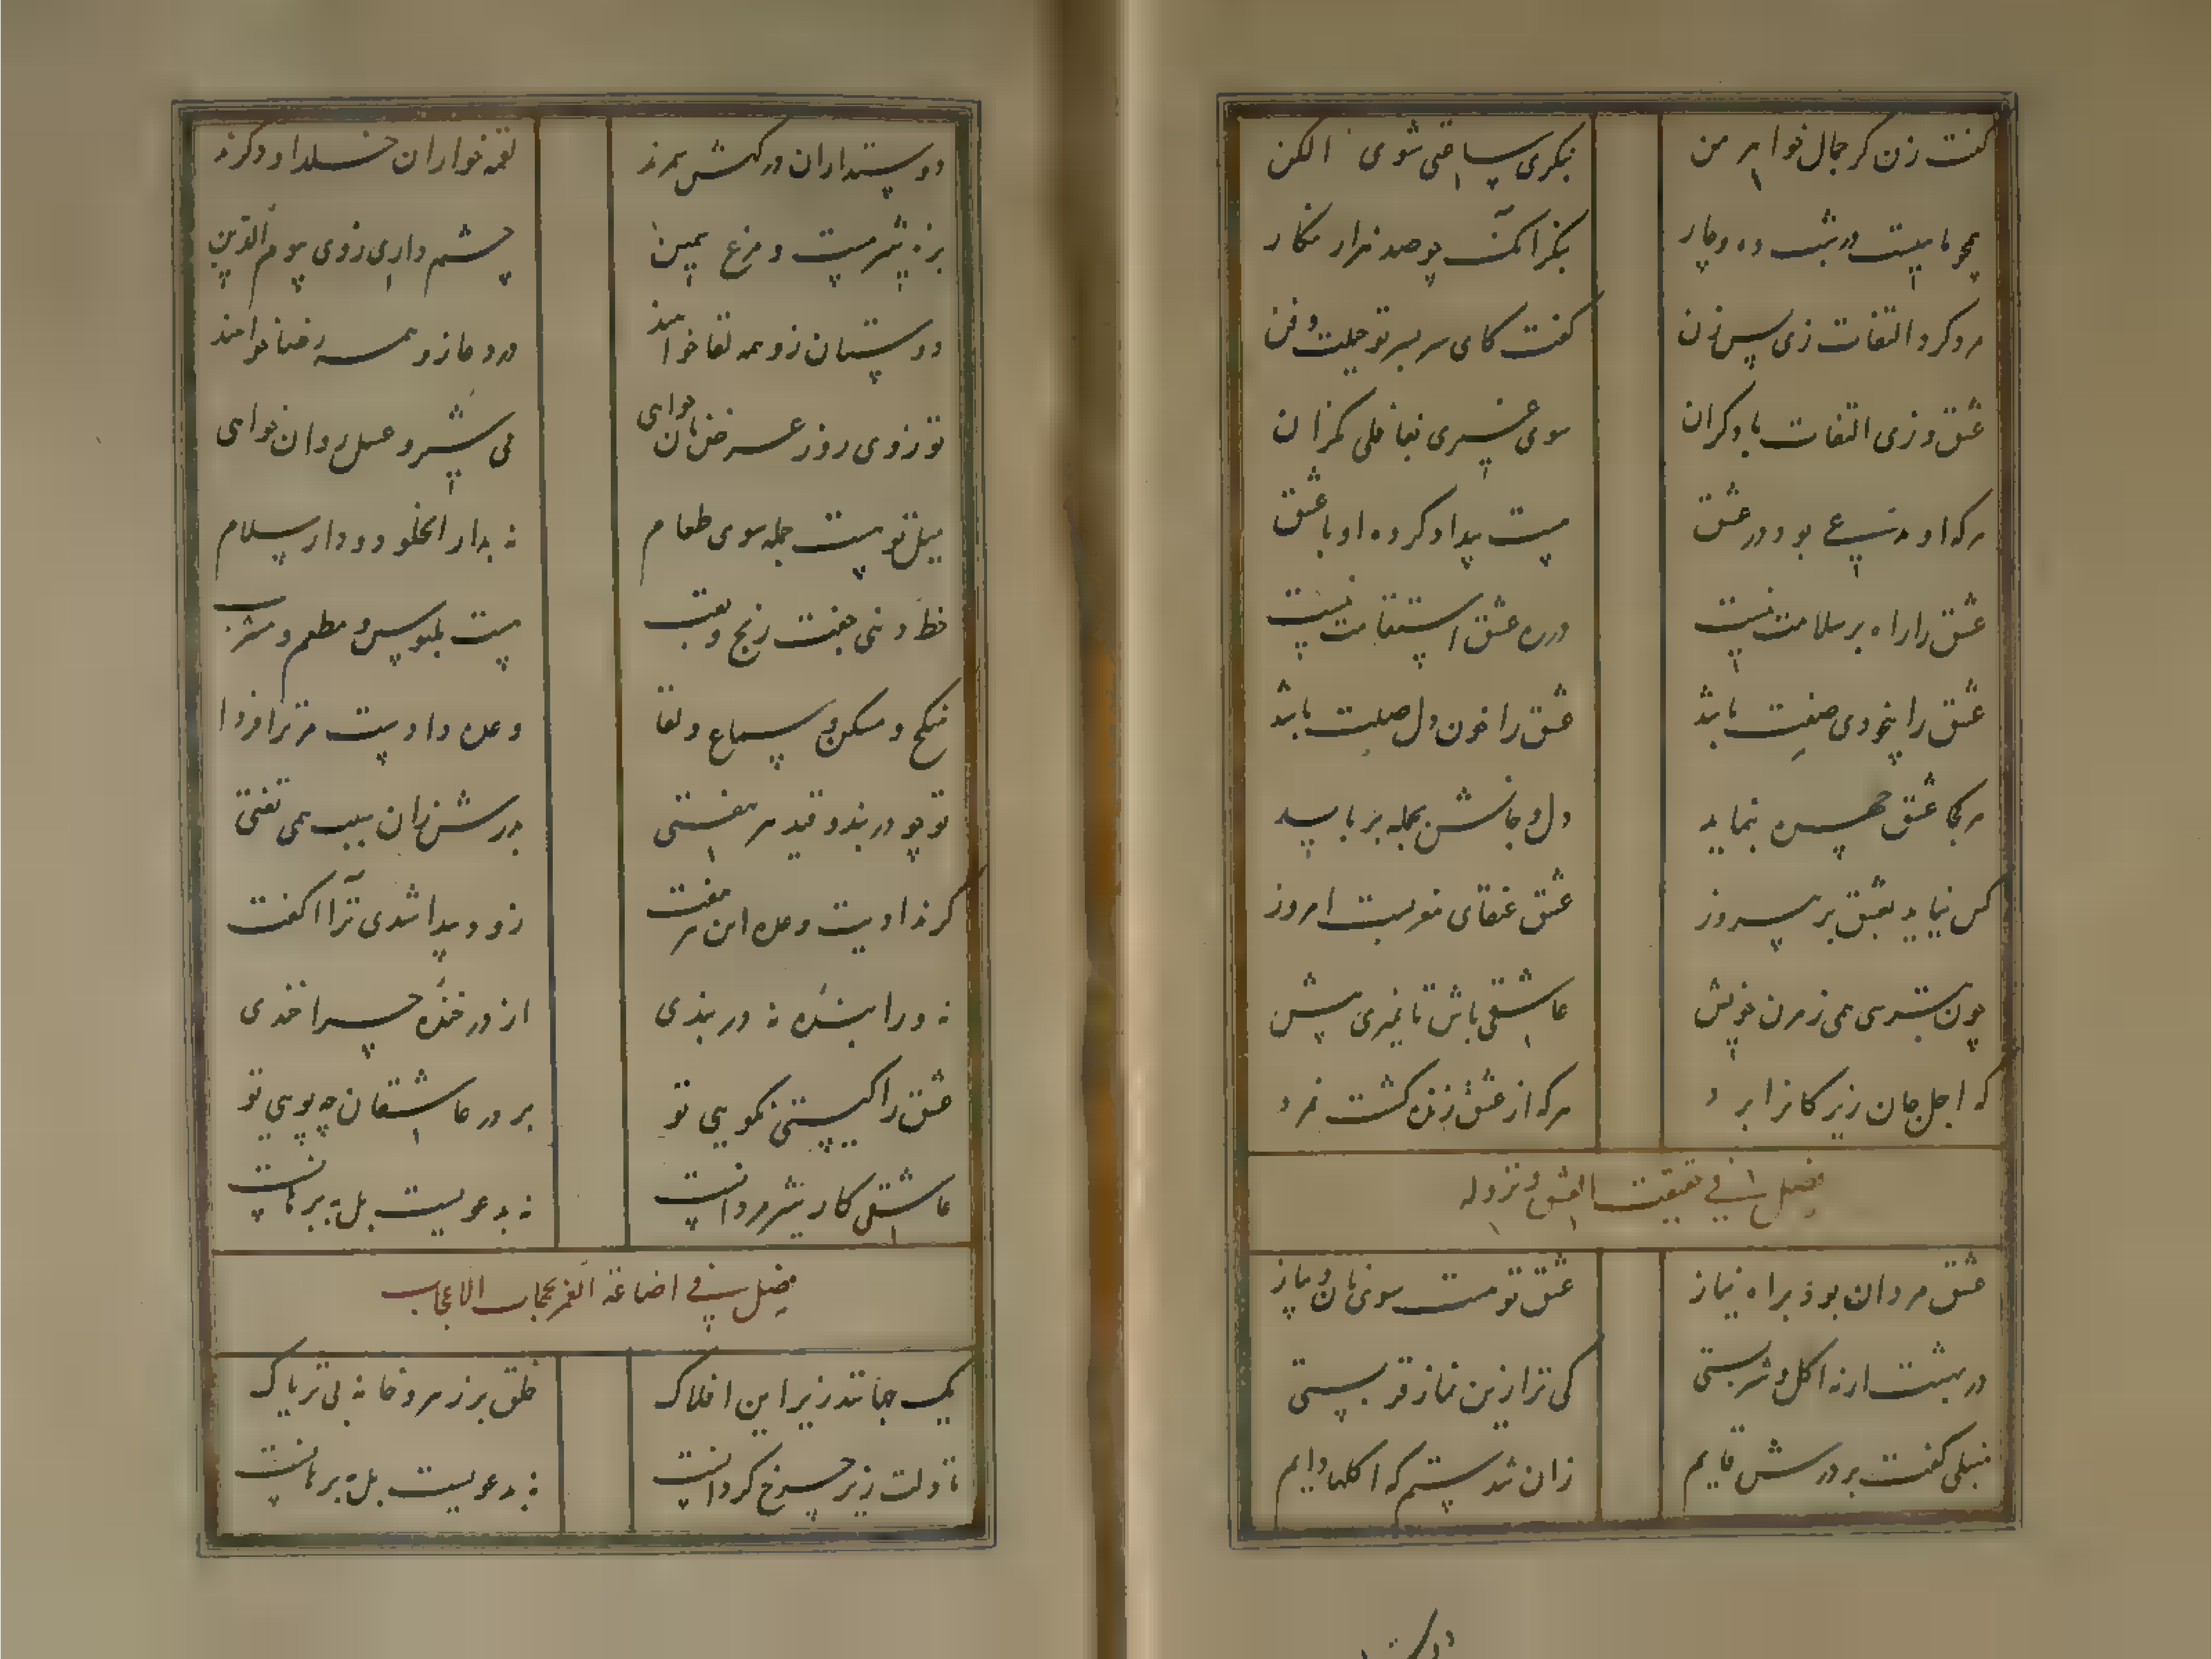 گفت زن گر جمال خواهر من
بنگری ساعتی شوی الکن
همچو ماهیست در شب ده و چار
بنگر آنک چو صد هزار نگار
مرد کرد التفات زی پس زن
گفت کای سر بسر تو حیلت و فن
عشق و زی التفات با دگران
سوی غیری بغافلی نگران
هرکه او بود در عشق
هست بیداد کرده او با عشق
عشق را راه بر سلامت نیست
در ره عشق استقامت نیست
عشق را بیخودی صفت باشد
عشق را خون دل صلت باشد
هر کجا عشق چهره بنماید
دل و جانش بجمله برباید
کس نیاید بعشق بر پیروز
عشق عنقای مغربست امروز
چون بترسی همی ز مردن خویش
عاشقی باش تا نمیری پیش
که اجل جان زیرکانرا برد
هرکه از عشق زنده گشت نمرد
فصل فی حقیقت العشق و نزوله
عشق مردان بود براه نیاز
عشق تو هست سوی نان و پیاز
در بهشت ار نه اکل و شربستی
کی ترا زین نماز قربستی
منبلی گفت بر درش قایم
زان شدستم که اکلها دایم
دوستداران درگهش سمرند
لقمه خواران خلد او دگرند
بره شیر مست و مرغ سمین
چشم داری زوی یوم الدین
دوستان زو همه لقا خواهند
در دعا زو همه رضا خواهند
تو زوی روز عرض نان خواهی
می و شیر و عسل روان خواهی
میل تو هست جمله سوی طعام
نه بدار الخلود و دار سلام
حظ دنیی جفت رنج و تعب
هست ملبوس و مطعم و مشرب
منکح و مسکن و سماع و لقا
وعده دادست مر ترا فردا
تو چو در بند و قید هر هفتی
بدرش زان سبب همی تفتی
گر ندادیت وعده این هر هفت
زو و پیدا شدی ترا آکفت
نه ورا بنده نه دربندی
از در خنده چرا خندی
عشق را گیستی نگویی تو
بر در عاشقان چه پویی تو
عاشقی کار شیر مردانست
نه بدعویست بل به برهانست
فصل فی اضاعة العمر بحجاب الاعجاب
یک جهانند زیر این افلاک
خلق برزهر و خانه بی تریاک
تا دلت زیر چرخ گردانست
نه بدعویست بل به برهانست